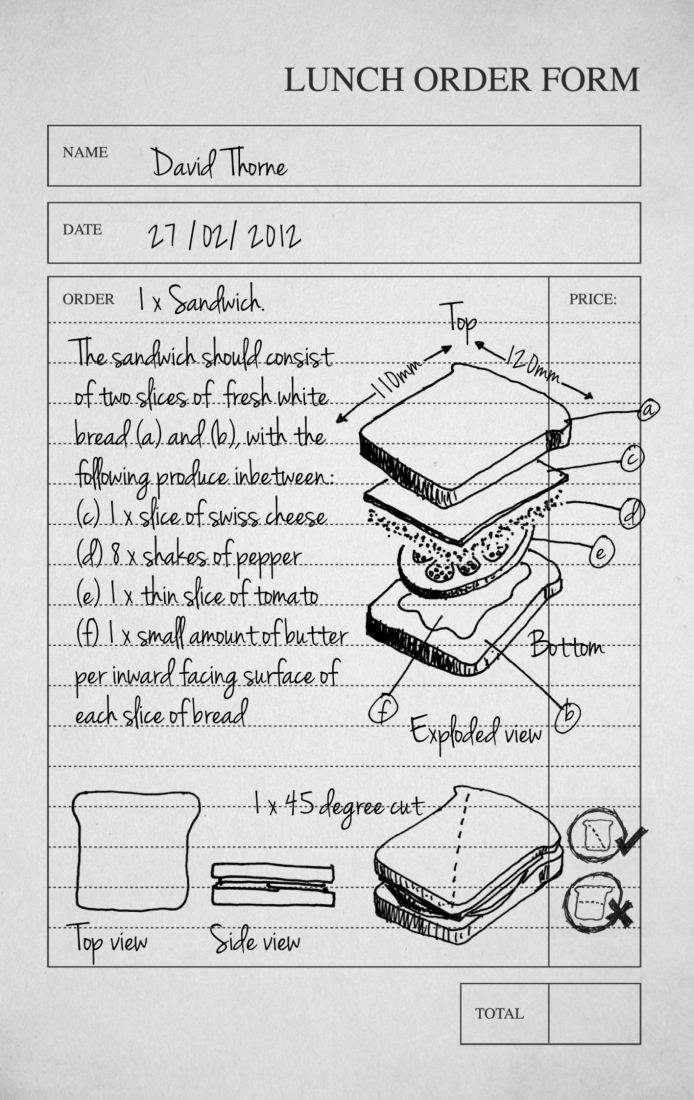 LUNCH ORDER FORM
NAME David Thorne
DATE 27/02/2012
ORDER 1 x Sandwich.
PRICE:
The sandwich should consist
of two slices of fresh white
bread (a) and (b), with the
following produce inbetween:
(c) 1 x slice of swiss cheese
(d) 8 x shakes of pepper
(e) 1 x thin slice of tomato
(f) 1 x small amount of butter
per inward facing surface of
each slice of bread
Top
110mm
120mm
a
c
d
e
Bottom
f
b
Exploded view
1 x 45 degree cut
Top view
Side view
TOTAL